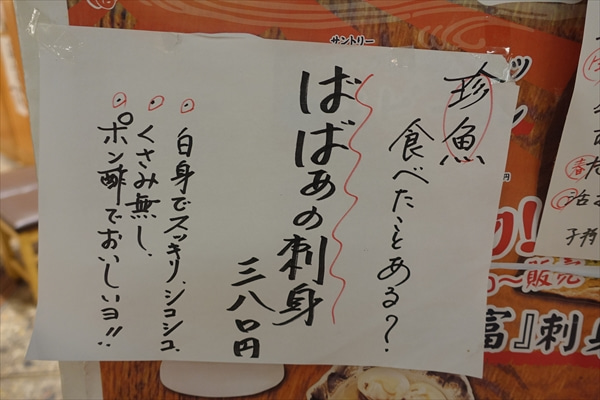 珍魚
食べたことある?
ばばあの刺身
三八〇円
白身でスッキリ、シコシコ、
くさみ無し、
ポン酢でおいしいヨ!!
サントリー
販売
富』刺身